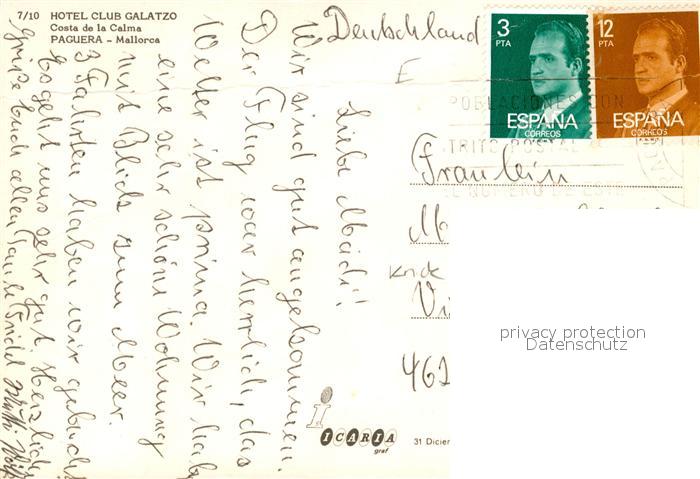 7/10 HOTEL CLUB GALATZO
Costa de la Calma
PAGUERA - Mallorca
Deutschland
E
3
PTA
ESPAÑA
CORREOS
12
PTA
ESPAÑA
CORREOS
POBLACIONES CON
TRITO POSTAL
EL NUMERO DE
Fräulein
M
Vi
462
privacy protection
Datenschutz
Liebe Mädi!
Wir sind gut angekommen.
Der Flug war herrlich, das
Wetter ist prima. Wir habe
eine sehr schöne Wohnung
mit Blick zum Meer.
3 Fahrten haben wir gebucht
Es geht uns sehr gut. Herzliche
Grüße Euch allen Tante Friedel
ICARIA
graf
31 Dicie